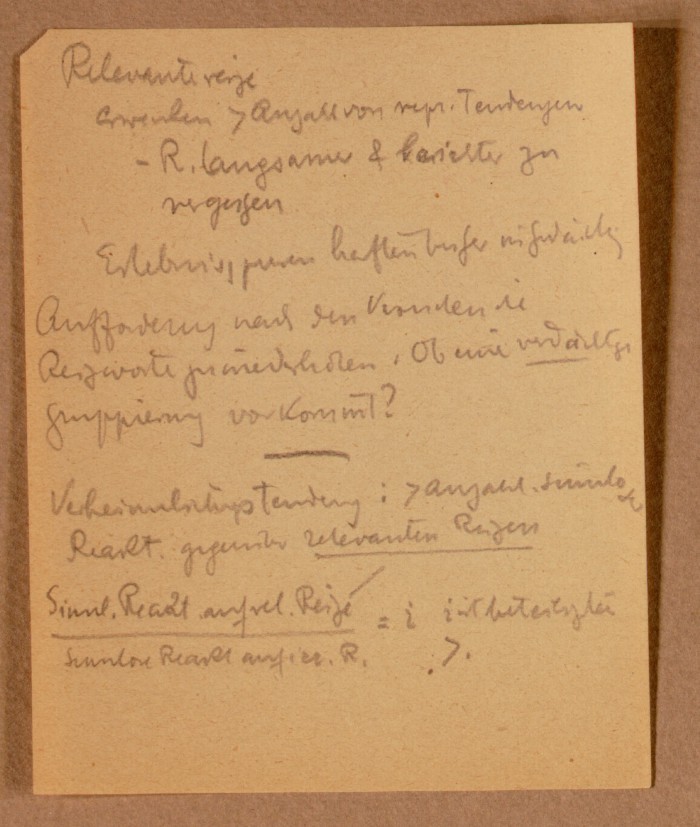 Relevante reize
erwecken > Anzahl von repr. Tendenzen
- R. langsamer & leichter zu
vergessen
Erlebnisspuren haften
Aufforderung nach den
Reizworte zu wiederholen. Ob eine verdächtige
Gruppierung vorkommt?
Verheimlichungstendenz : > Anzahl. sinnlose
Reakt. gegenüber relevanten Reizen
Sinnl. Reakt. auf rel. Reize = i ist beteiligter
sinnlose Reakt auf irr. R. >.